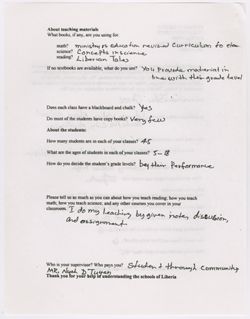 About teaching materials
What books, if any, are you using for:
math? ministry of education revised curriculum to elem
science? Concepts in science
reading? Liberian Tales
If no textbooks are available, what do you use? You provide material in
line with their grade level
Does each class have a blackboard and chalk? Yes
Do most of the students have copy books? Very few
About the students:
How many students are in each of your classes? 45
What are the ages of students in each of your classes? 5-18
How do you decide the student's grade levels? by their Performance
Please tell us as much as you can about how you teach reading; how you teach
math, how you teach science; and any other courses you cover in your
classroom. I do my teaching by given notes, discussion,
and assignment
Who is your supervisor? Who pays you? Student through community
MR.
Thank you for your help in understanding the schools of Liberia